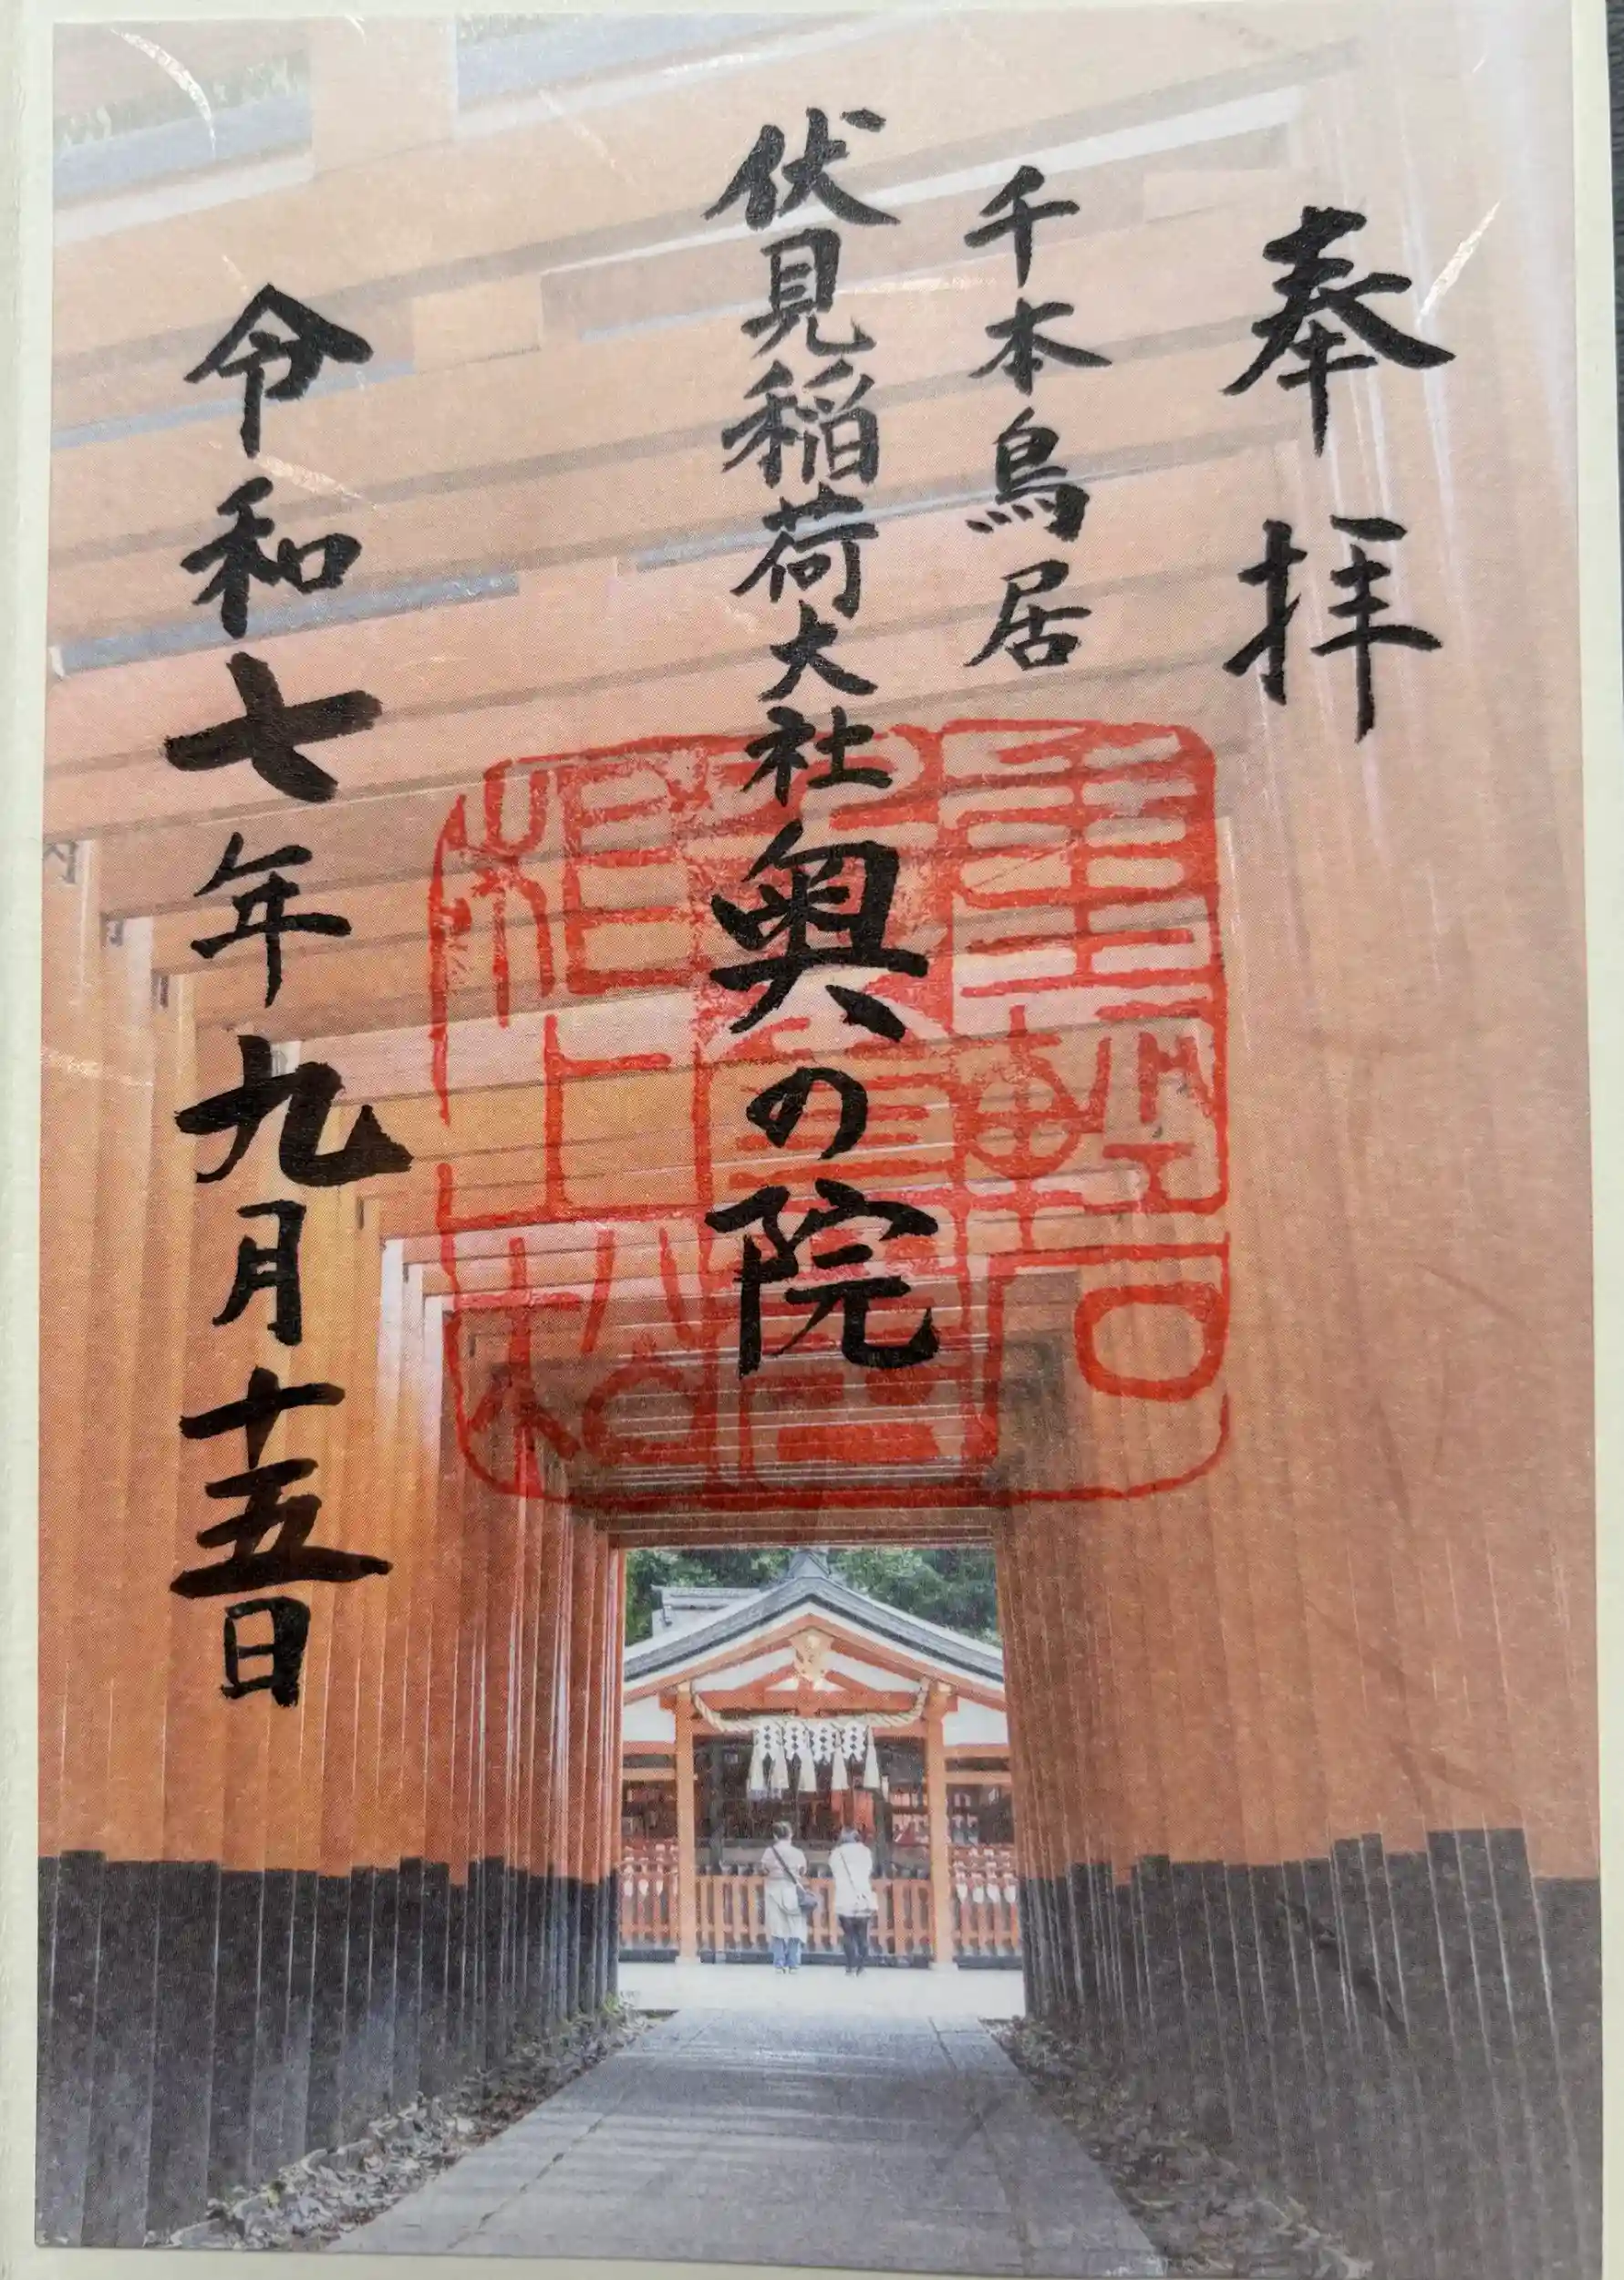 奉拝
千本鳥居
伏見稲荷大社奥の院
令和七年九月十五日